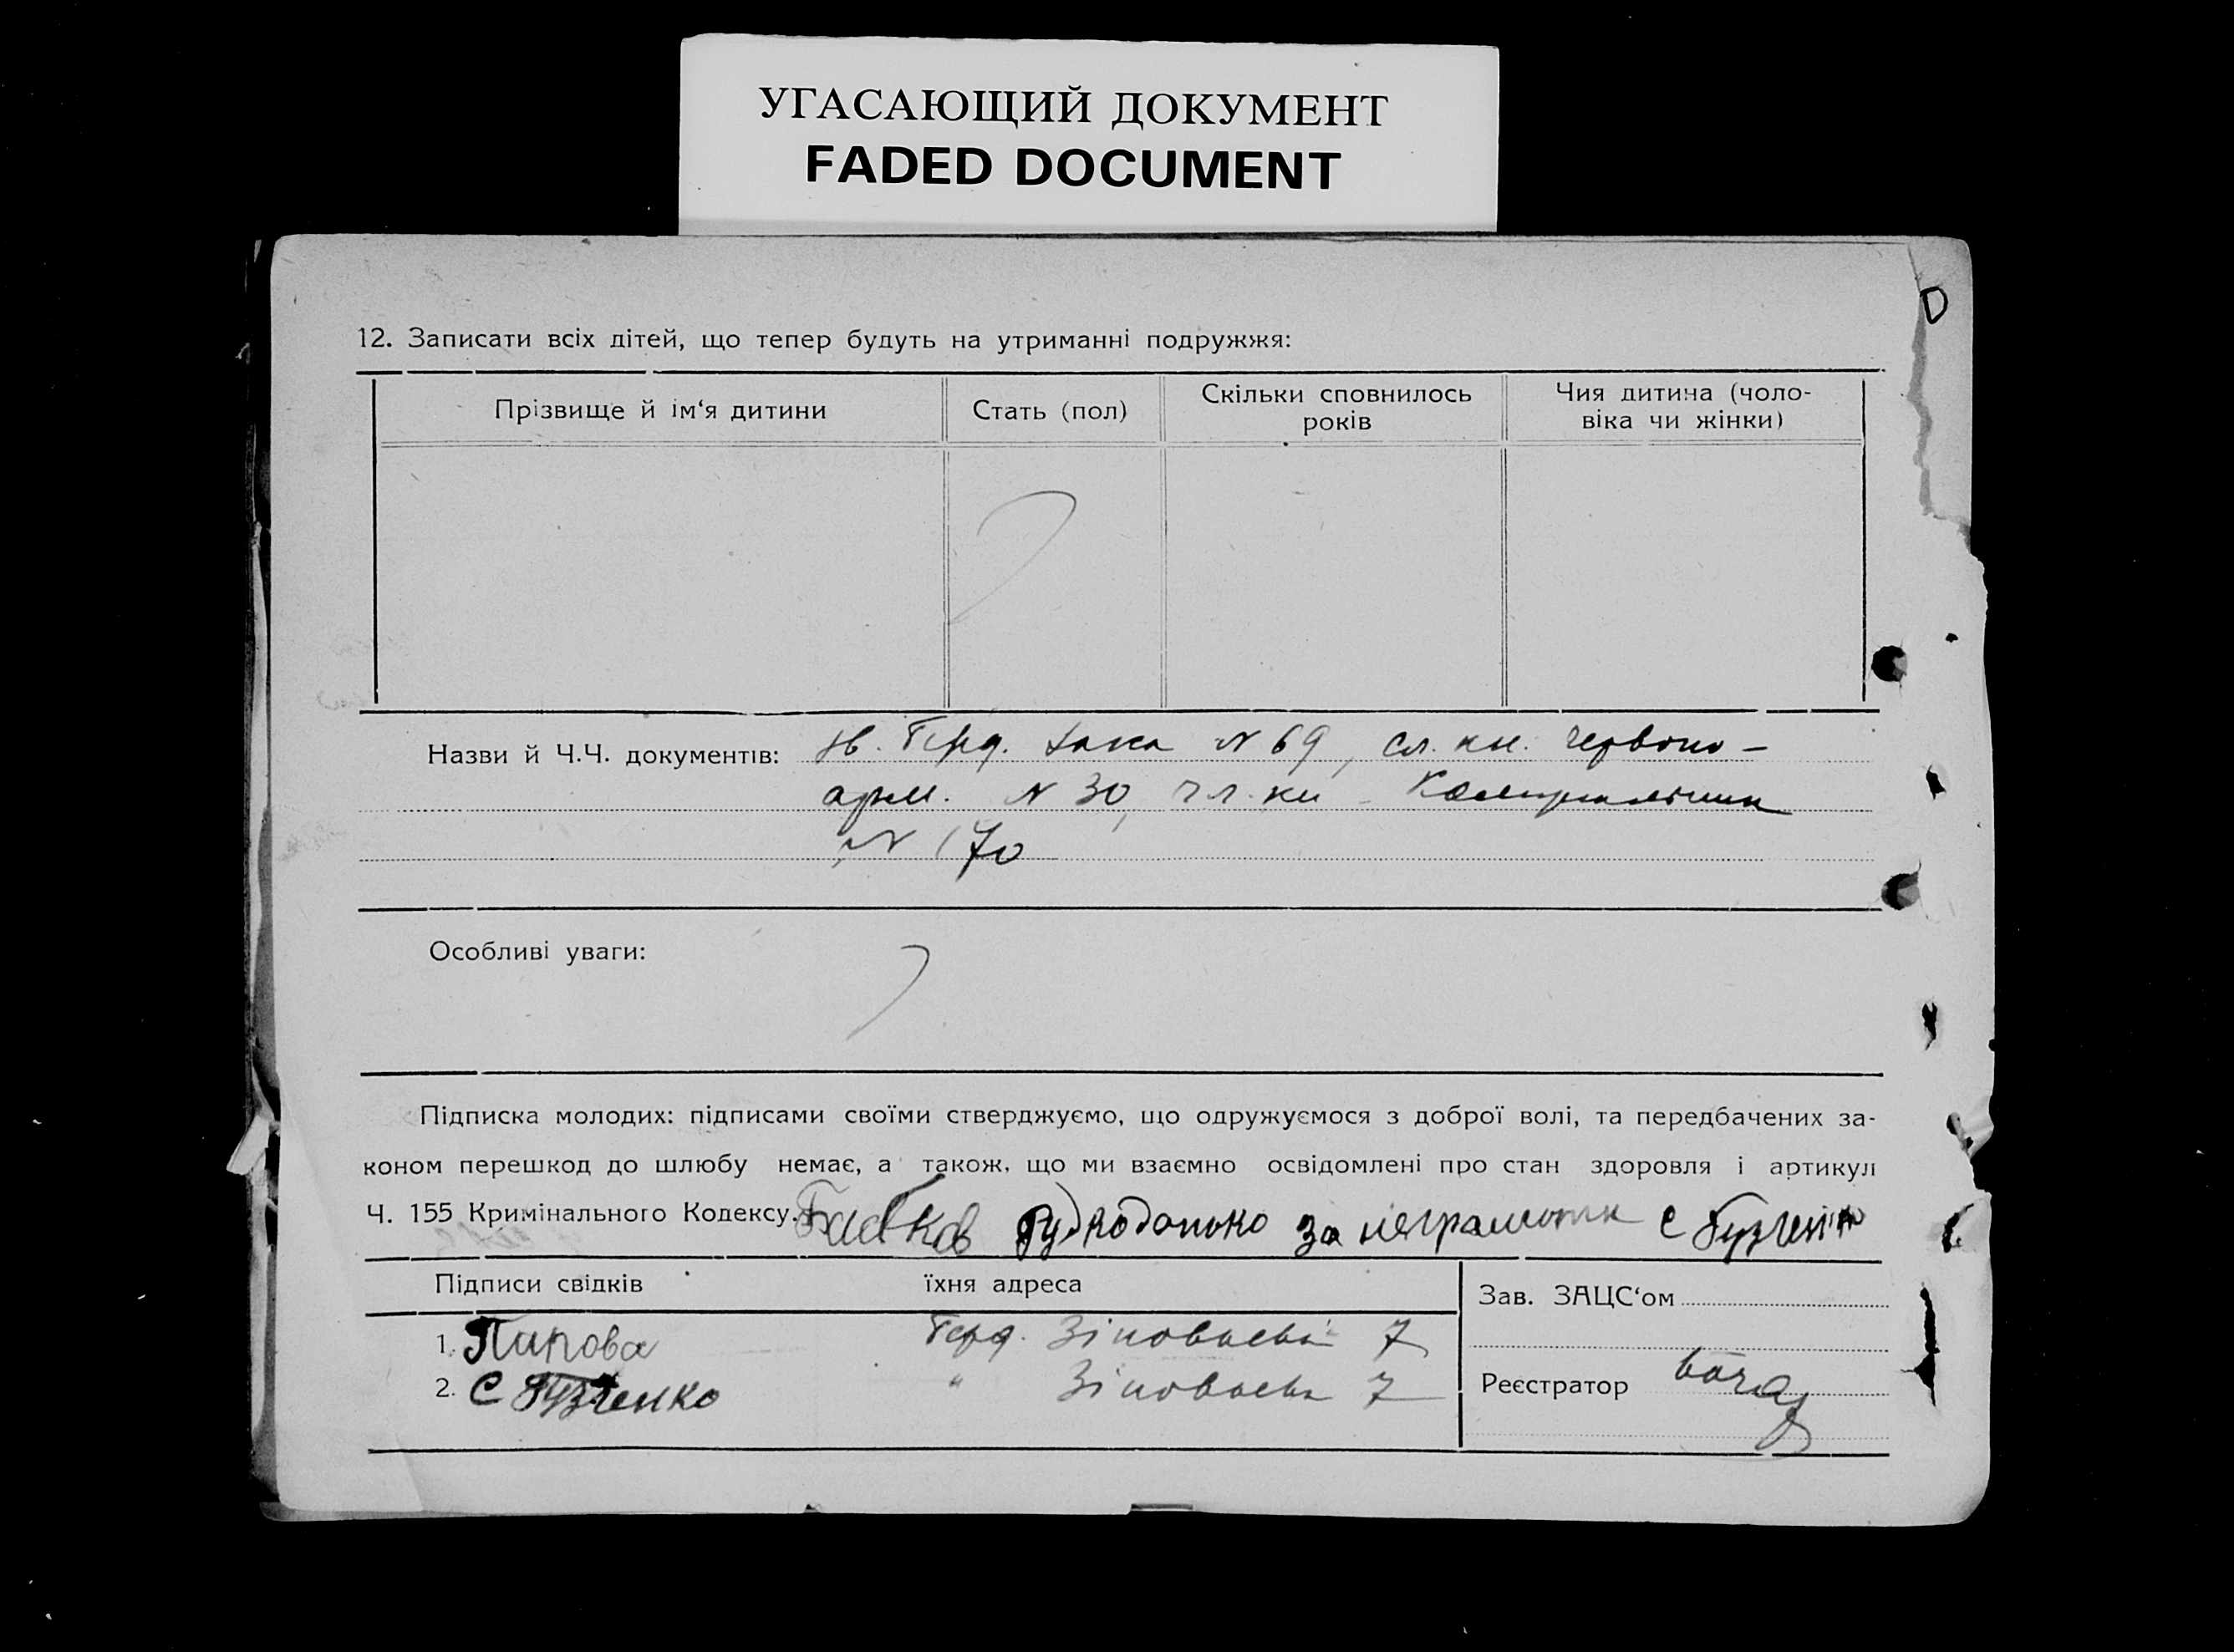 УГАСАЮЩИЙ ДОКУМЕНТ
FADED DOCUMENT
D
12. Записати всіх дітей, що тепер будуть на утриманні подружжя:
Прізвище й ім‘я дитини
Стать (пол)
Скільки сповнилось
років
Чия дитина (чоло-
віка чи жінки)
Назви й Ч.Ч. документів: N 69, сл. кн. Червоно-
арм. N 30, чл. кн
N 170
Особливі уваги:
Підписка молодих: підписами своїми стверджуємо, що одружуємося з доброї волі, та передбачених за-
коном перешкод до шлюбу немає, а також, що ми взаємно освідомлені про стан здоровля і артикул
Ч. 155 Кримінального Кодексу. за
Підписи свідків
їхня адреса
Зав. ЗАЦС‘ом
1. 7
2. С " 7
Реєстратор